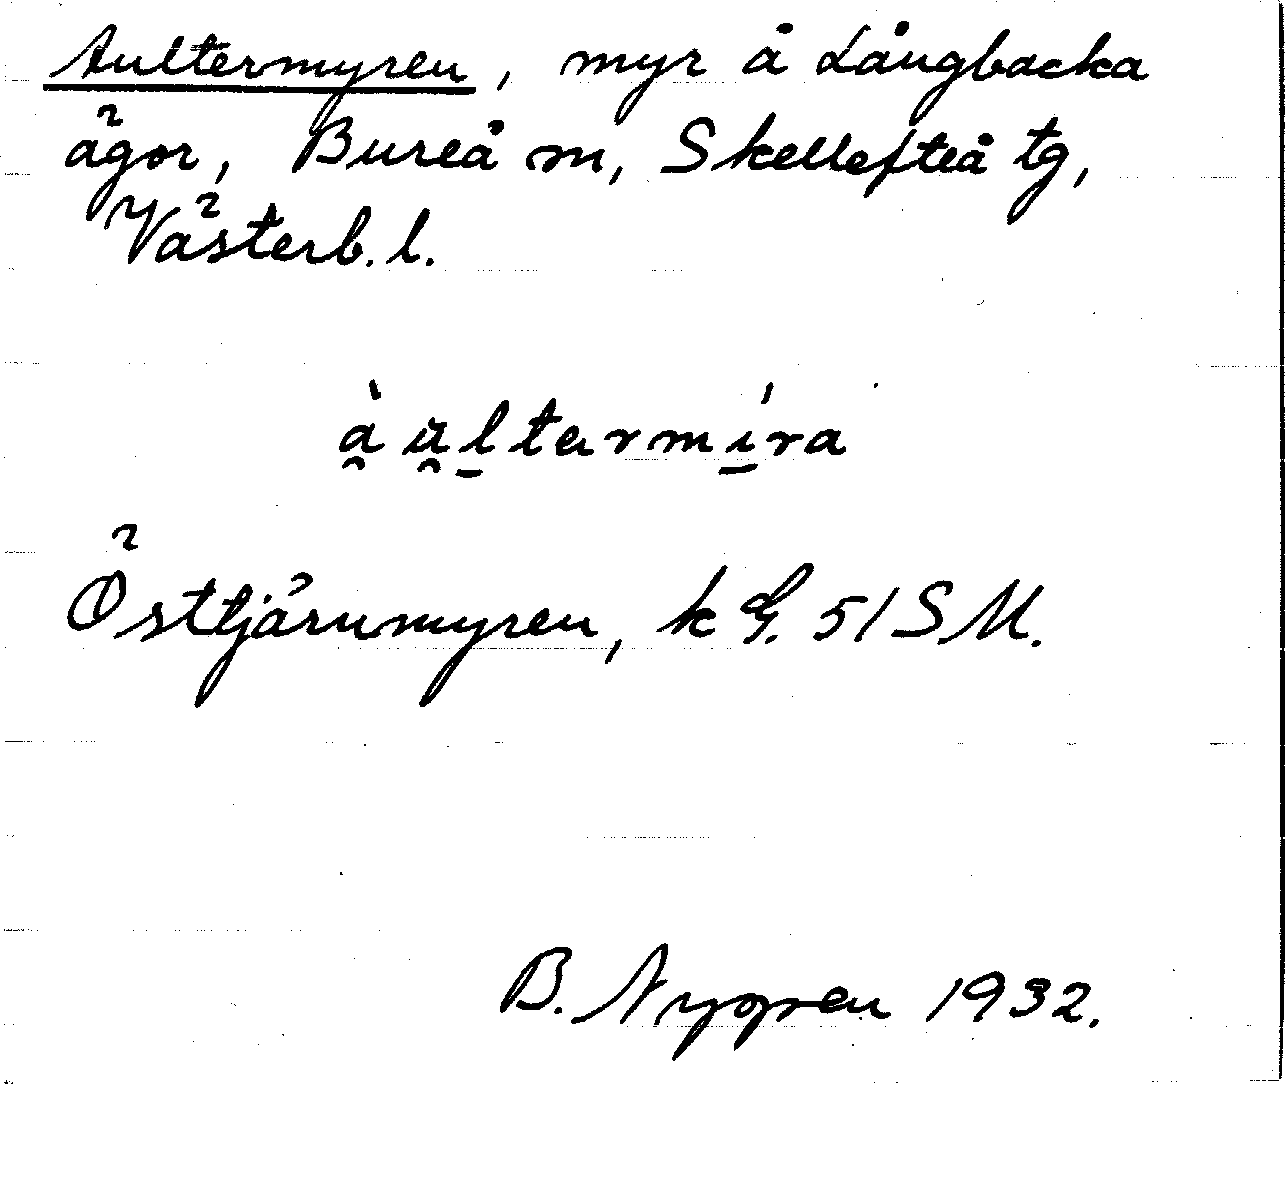 Aultermyren, myr å Långbacka
ägor, Bureå sn, Skellefteå tg,
Västerb. l.
àu̯ltermíra
Östtjärnmyren, k G. 51 SM.
B. Nygren 1932.